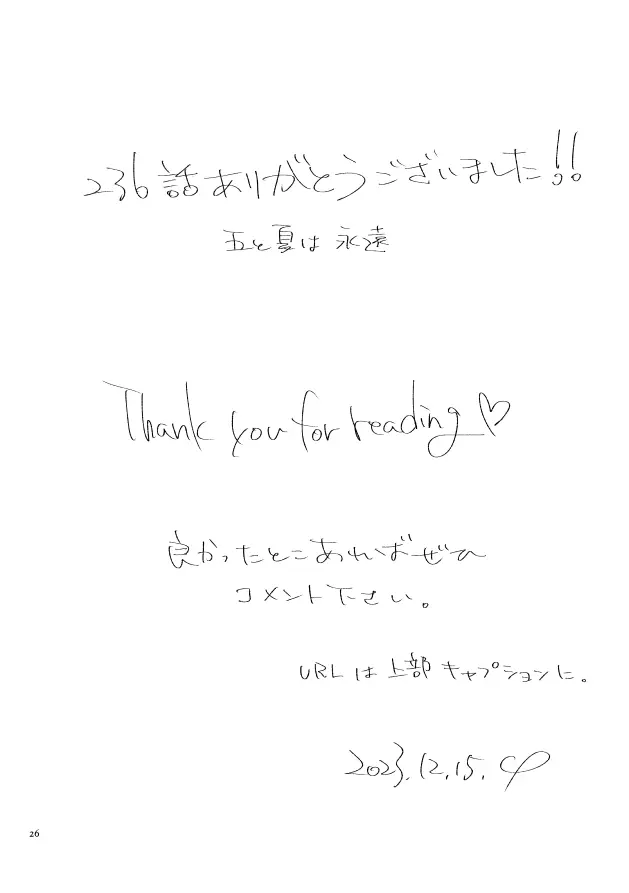 236話ありがとうございました!!
五と夏は永遠
Thank you for reading♡
良かったとこあればぜひ
コメント下さい。
URLは上部キャプションに。
2023.12.15.
26